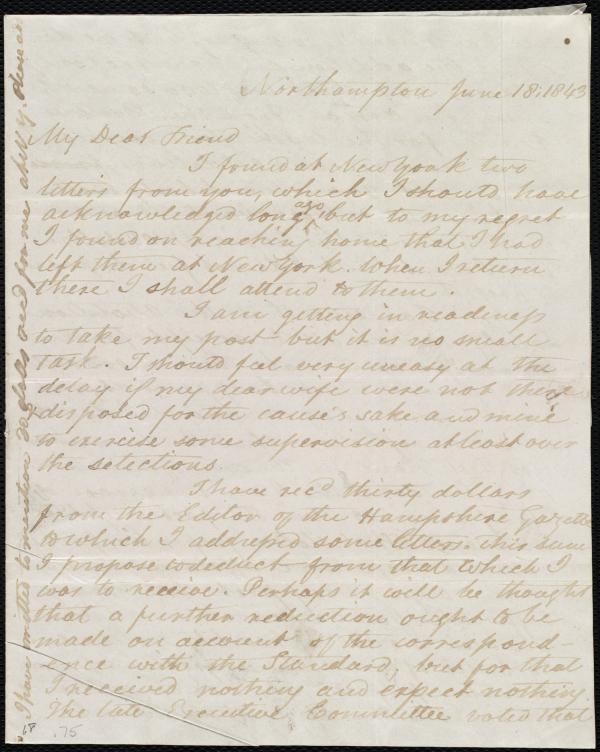 Northampton June 18, 1843
My Dear Friend
I found at New York two
letters from you, which I should have
acknowledged long ago, but to my regret
I found on reaching home that I had
left them at New York. When I return
there I shall attend to them.
I am getting in readiness
to take my post but it is no small
task. I should feel very uneasy at the
delay if my dear wife were not there
& disposed for the cause's sake and mine
to exercise some supervision at least over
the selections.
I have recd thirty dollars
from the Editor of the Hampshire Gazette
to which I addressed some letters. This sum
I propose to deduct from that which I
was to receive. Perhaps it will be thought
that a further reduction ought to be
made on account of the correspond-
ence with the Standard, but for that
I received nothing and expect nothing.
The late Executive Committee voted that
I have omitted to mention
and for me at N.Y.
18
.75